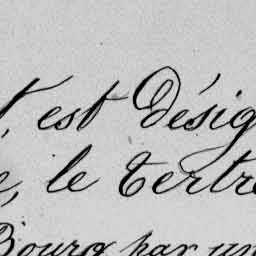 t, est désig
e, le tertre
Bourg par un